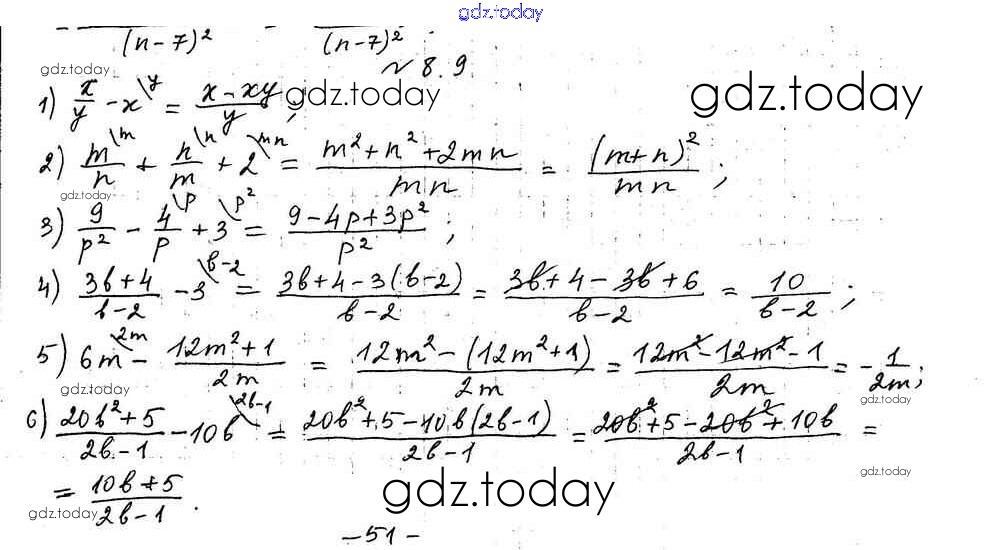 gdz.today
(n-7)² (n-7)²
№ 8.9
gdz.today
1) x/y - x\y = (x - xy)/y ;
gdz.today
gdz.today
2) m/n\m + n/m\n + 2\mn = (m² + n² + 2mn)/(mn) = (m+n)²/(mn) ;
gdz.today
gdz.today
3) 9/p² - 4/p\p + 3\p² = (9 - 4p + 3p²)/p² ;
4) (3b+4)/(b-2) - 3\b-2 = (3b+4-3(b-2))/(b-2) = (3b+4-3b+6)/(b-2) = 10/(b-2) ;
5) 6m\2m - (12m²+1)/(2m) = (12m²-(12m²+1))/(2m) = (12m²-12m²-1)/(2m) = -1/(2m) ;
gdz.today
gdz.today
6) (20b²+5)/(2b-1) - 10b\2b-1 = (20b²+5-10b(2b-1))/(2b-1) = (20b²+5-20b²+10b)/(2b-1) =
gdz.today
= (10b+5)/(2b-1) .
gdz.today
gdz.today
-51-